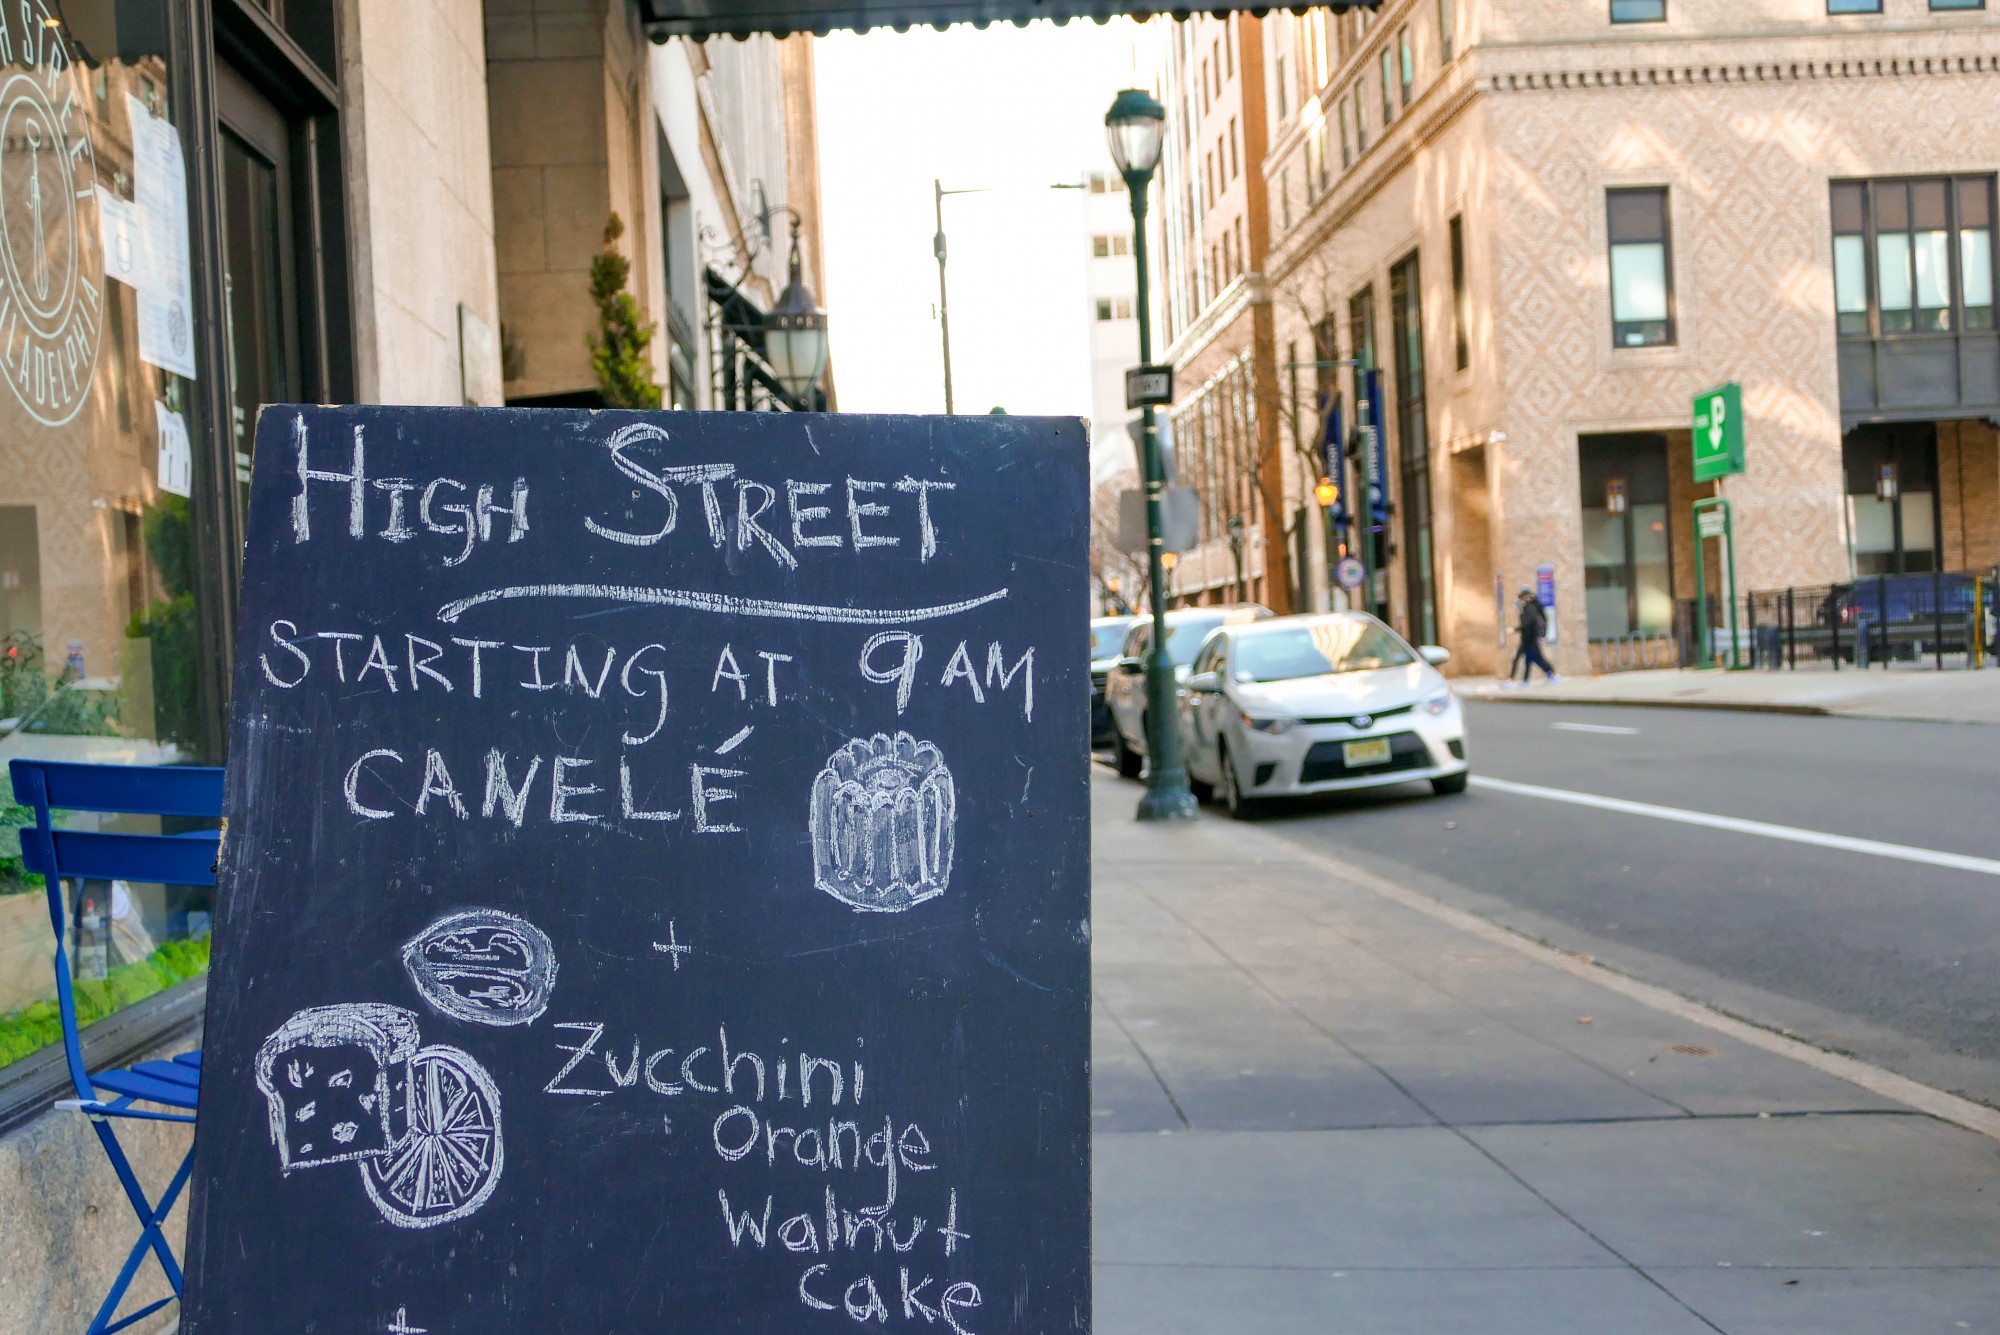 HIGH STREET
PHILADELPHIA
HIGH STREET
STARTING AT 9AM
CANELÉ
+
Zucchini
Orange
Walnut
cake
+
P